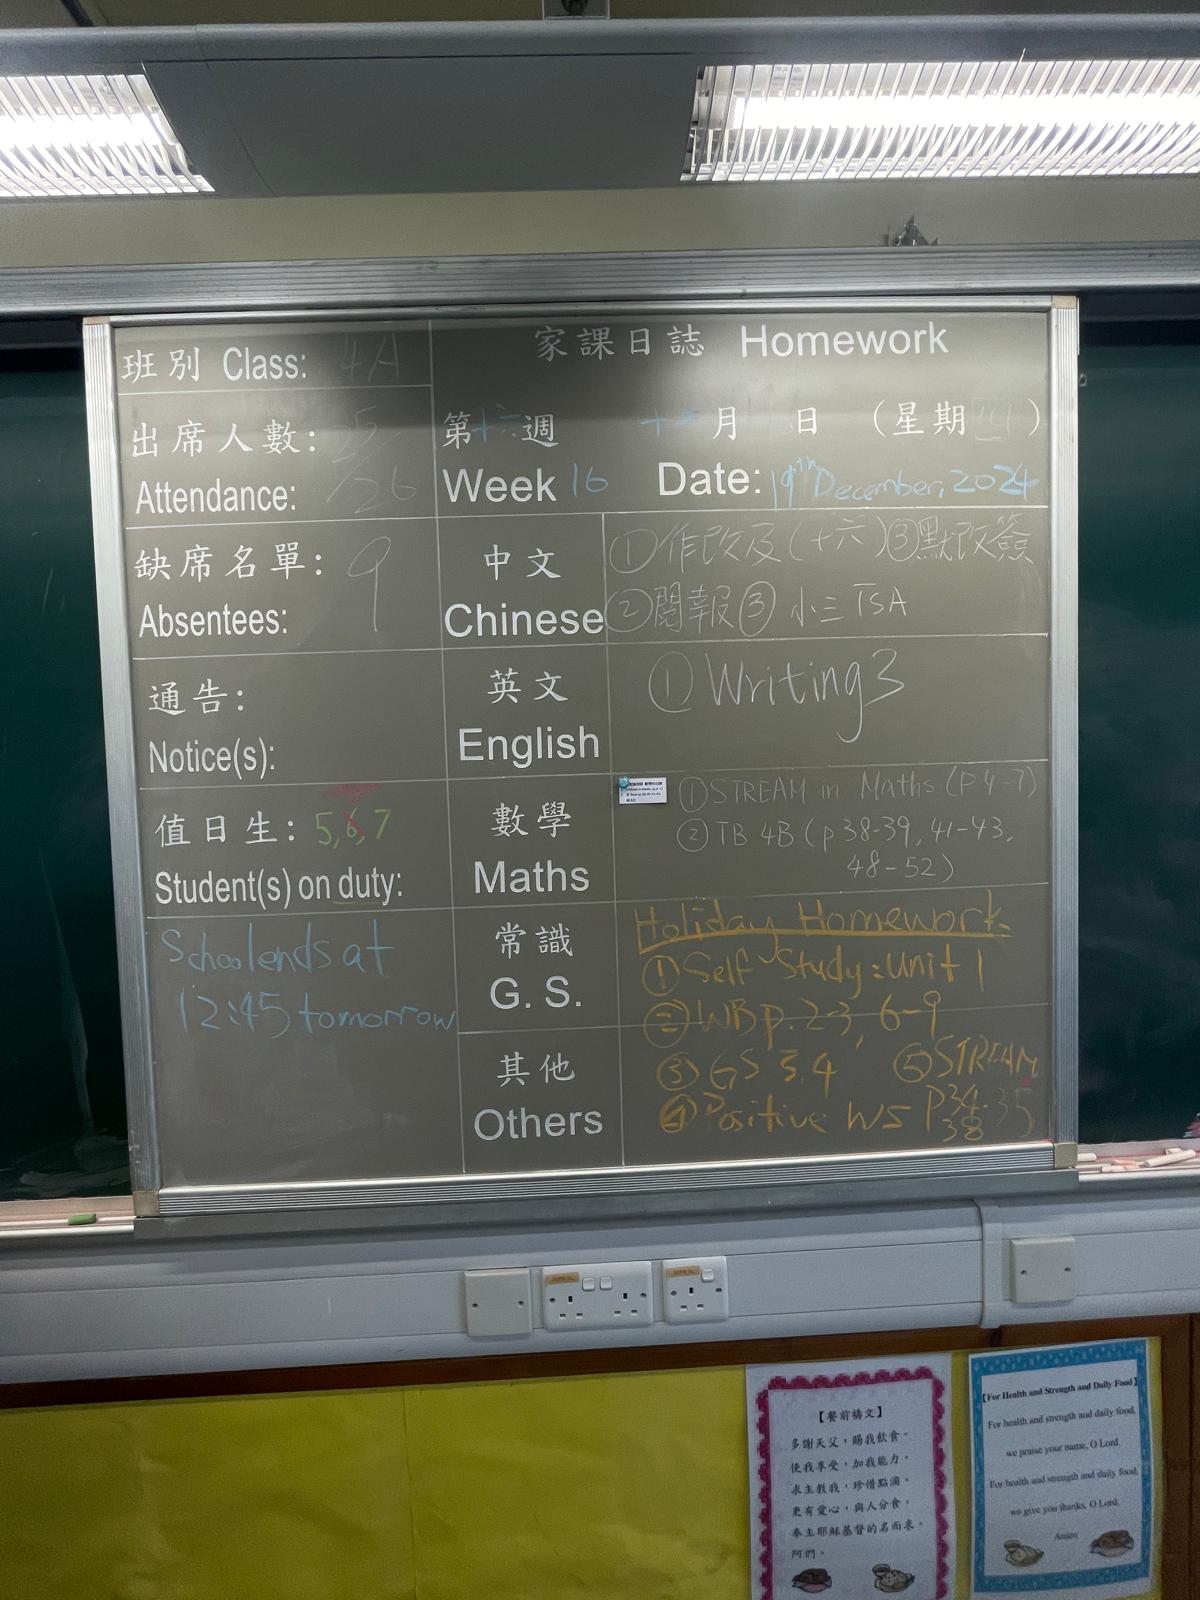 班別 Class: 4A
家課日誌 Homework
出席人數: 25
Attendance: /26
第十六週 十二月 日 (星期四)
Week 16 Date: 19th December, 2024
缺席名單: 9
Absentees:
中文
Chinese
①作改及(十六)③默改簽
②閱報③小三TSA
通告:
Notice(s):
英文
English
①Writing3
值日生: 5,6,7
Student(s) on duty:
數學
Maths
①STREAM in Maths (P4-7)
②TB 4B (p.38-39, 41-43,
48-52)
School ends at
12:45 tomorrow
常識
G. S.
Holiday Homework
①Self Study: Unit 1
②WB p. 2-3, 6-9
其他
Others
③GS 3.4 ⑤STREAM
④Positive WS P34-35
38
【餐前禱文】
多謝天父，賜我飲食。
使我享受，加我能力。
求主教我，珍惜點滴。
更有愛心，與人分食。
奉主耶穌基督的名而求。
阿們。
【For Health and Strength and Daily Food】
For health and strength and daily food,
we praise your name, O Lord.
For health and strength and daily food,
we give you thanks, O Lord.
Amen